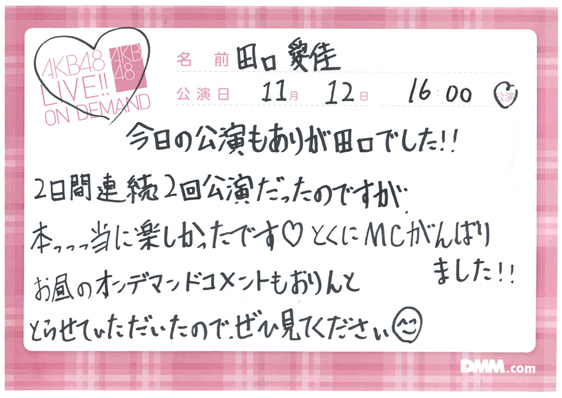 AKB48
LIVE!!
ON DEMAND
AKB
48
名前 田口 愛佳
公演日 11月 12日 16:00 公演
今日の公演もありが田口でした!!
2日間連続2回公演だったのですが、
本っっっ当に楽しかったです♡ とくにMCがんばり
ました!!
お昼のオンデマンドコメントもおりんと
とらせていただいたので、ぜひ見てください
DMM.com